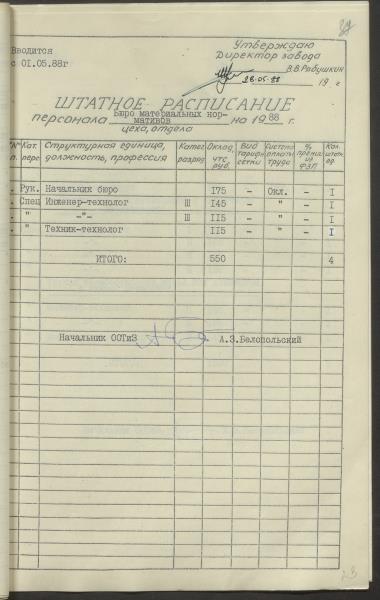 Вводится
с 01.05.88г
Утверждаю
Директор завода
В.В.Рябушкин
28.05.88 19 г
ШТАТНОЕ РАСПИСАНИЕ
Бюро материальных нор-
персонала мативов на 1988 г.
цеха, отдела
№ п. Кат. перс Структурная единица, должность, профессия Катег разряд Оклад, чтс руб. Вид тарифн сетки Система оплаты труда % премии из ФЗП Кол. штатн ед.
Рук. Начальник бюро 175 – Окл. – I
Спец Инженер-технолог Ш 145 – " – I
" -"- Ш 115 – " – I
" Техник-технолог 115 – " – I
ИТОГО: 550 4
Начальник ООТиЗ А.З.Белопольский